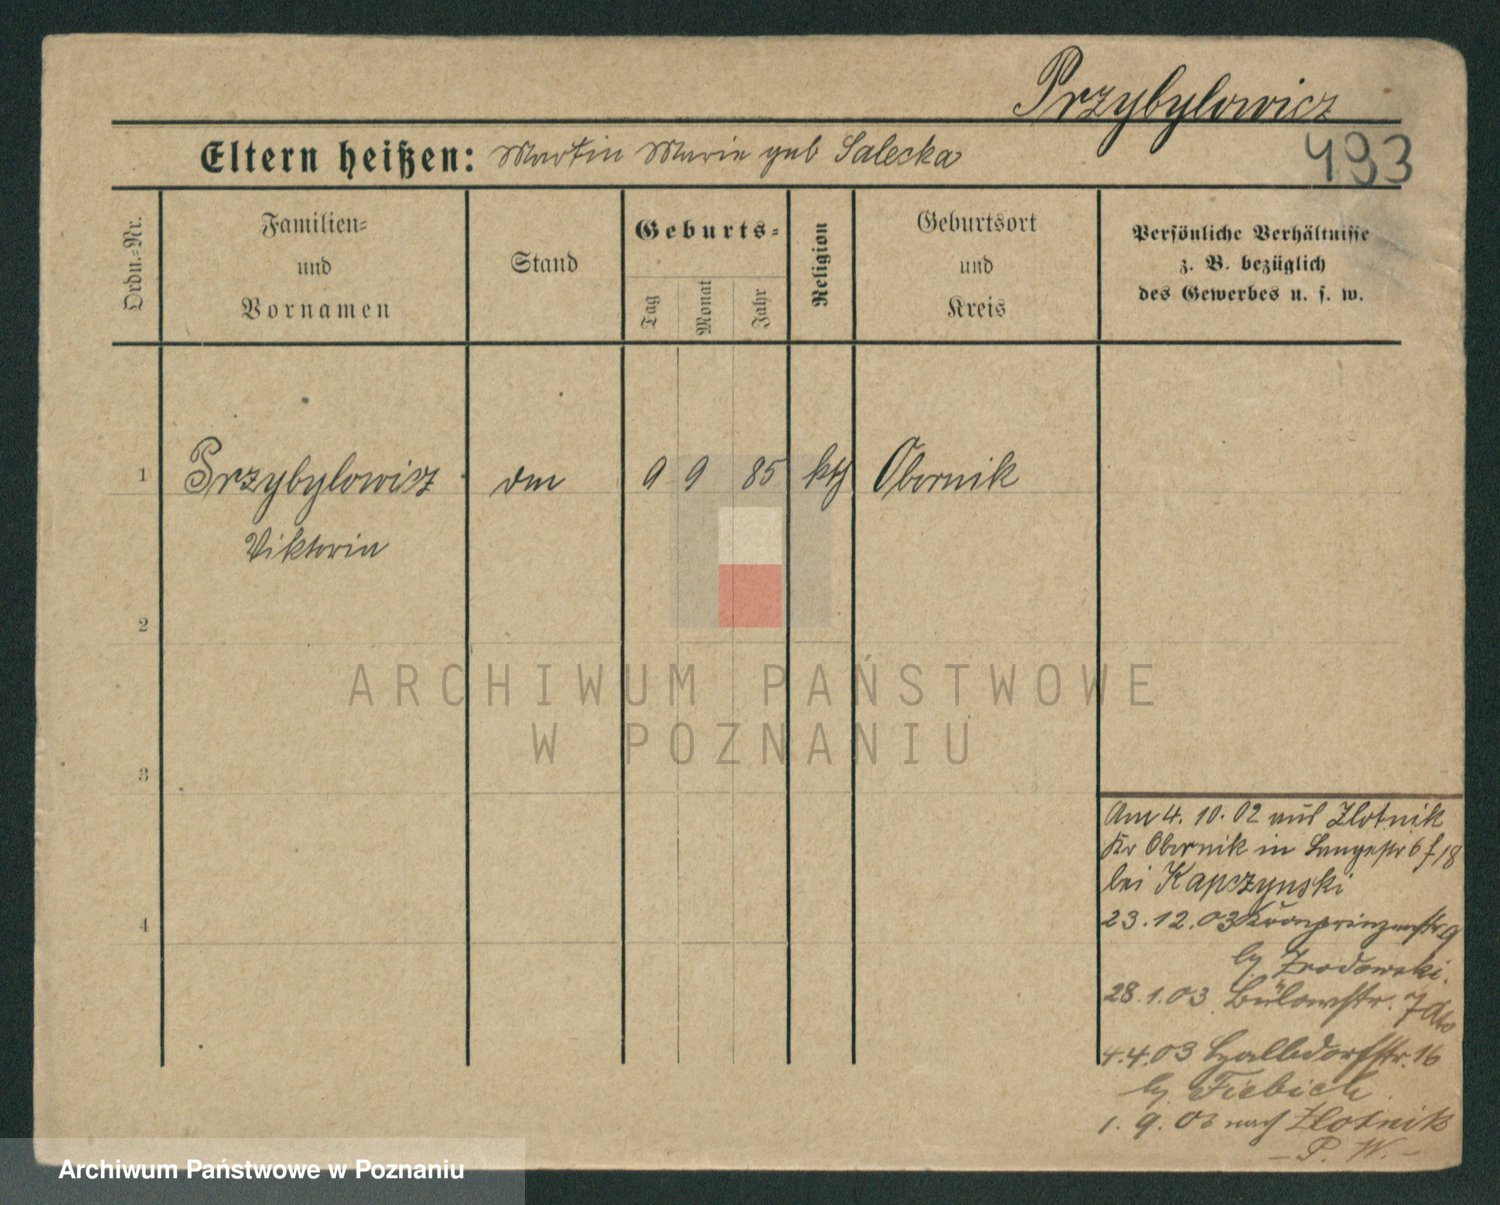 Przybylowicz
493
Eltern heißen: Martin Marie geb Salecka
Ordn.-Nr.
Familien-
und
Vornamen
Stand
Geburts-
Tag
Monat
Jahr
Religion
Geburtsort
und
Kreis
Persönliche Verhältnisse
z. B. bezüglich
des Gewerbes u. s. w.
1 Przybylowicz 9 9 85 kth Obornik
Viktoria
2
3
4
Am 4. 10. 02 aus Zlotnik
Kr Obornik in Langestr 6
bei Kapczynski
23. 12. 03 Kronprinzenstr 9
28. 1. 03 Bülowstr. 7
4. 4. 03 Halbdorfstr. 16
Fiebich
1. 9. nach Zlotnik
P. W.
ARCHIWUM PAŃSTWOWE
W POZNANIU
Archiwum Państwowe w Poznaniu